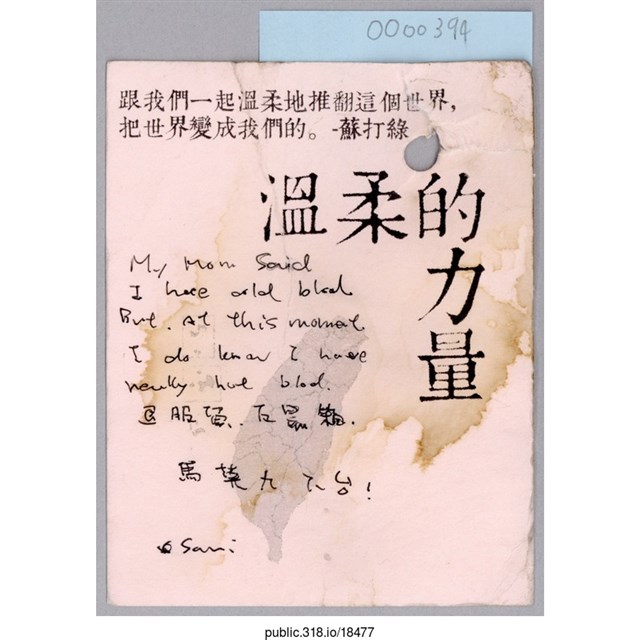 0000394
跟我們一起溫柔地推翻這個世界，
把世界變成我們的。-蘇打綠
溫柔的
力
量
My Mom Said
I have cold blood
But. At this moment
I do know I have
really hot blood.
退服貿.反黑箱.
馬英九下台!
Sani
public.318.io/18477